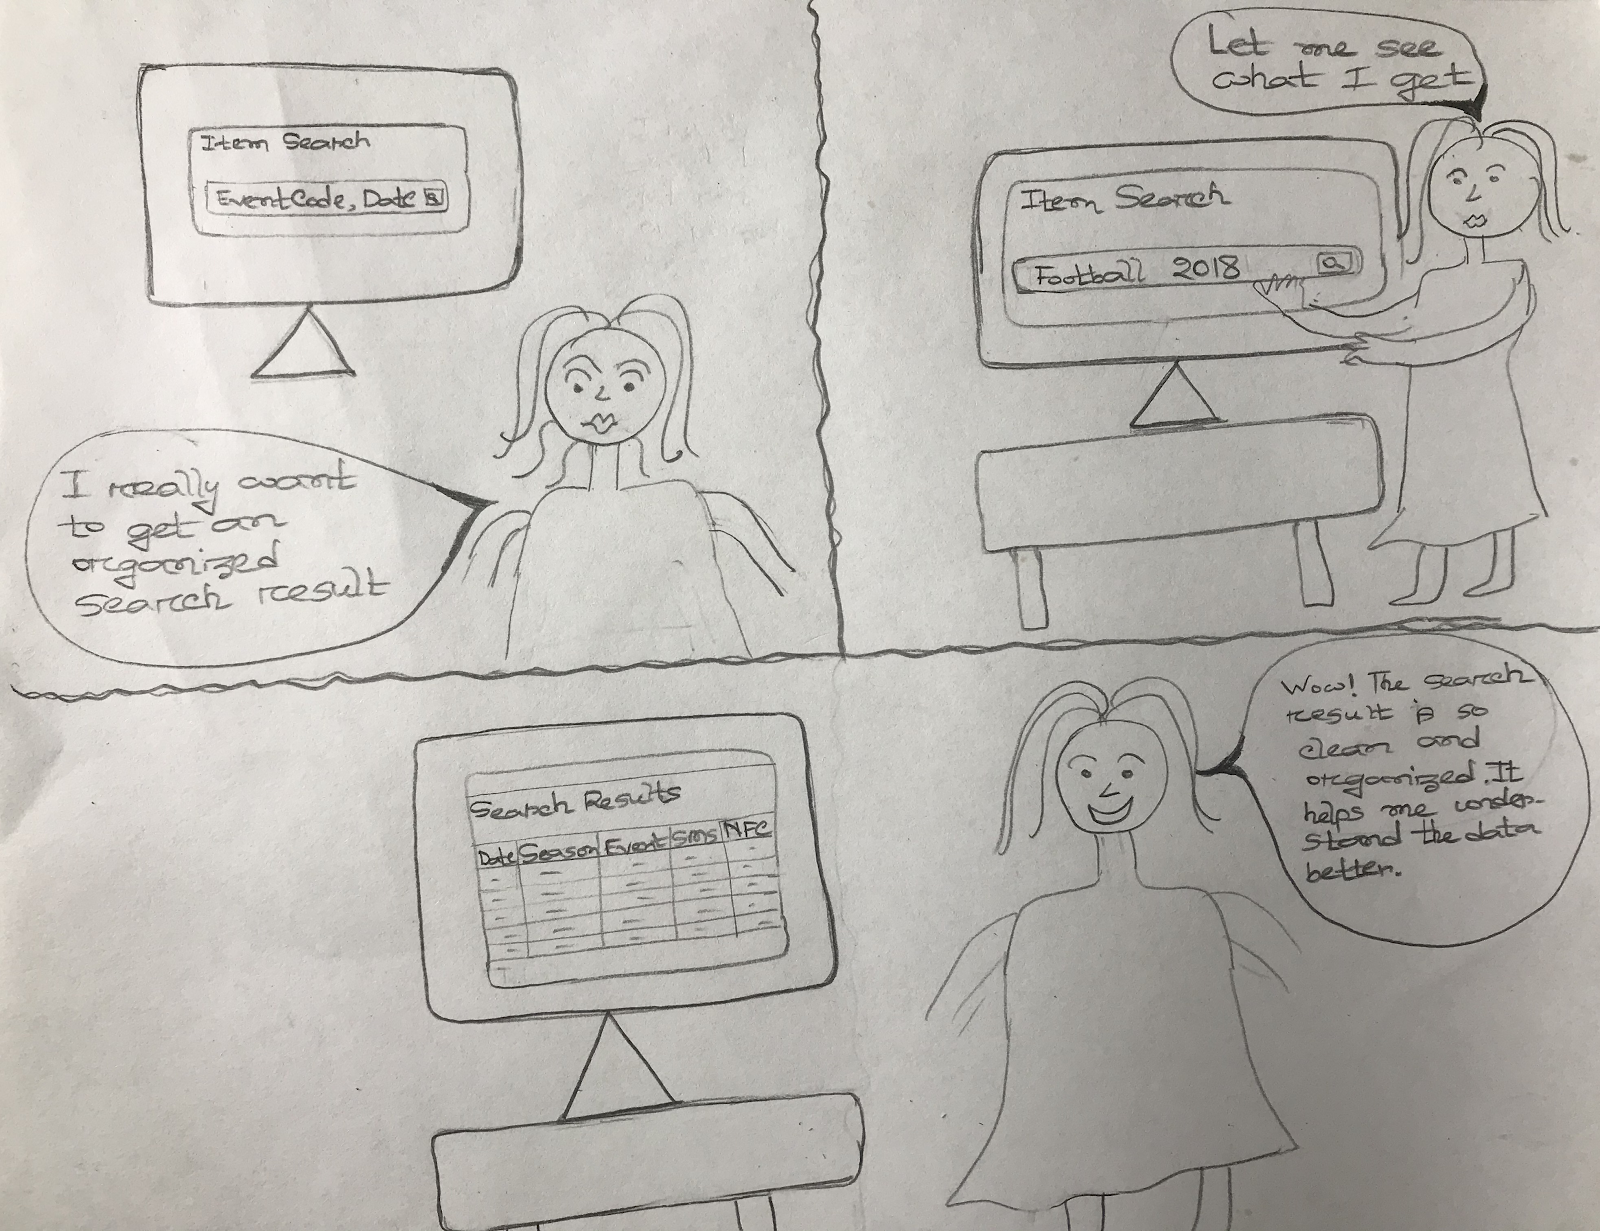 Item Search
EventCode, Date
I really want
to get an
organized
search result
Let me see
what I get
Item Search
Football 2018
Search Results
Date Season Event Sms NFC
Wow! The search
result is so
clean and
organized. It
helps me under-
stand the data
better.